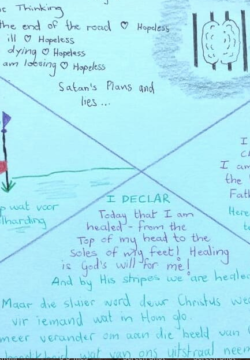 Thinking
the end of the road ♡ Hopeless
ill ♡ Hopeless
dying ♡ Hopeless
am loosing ♡ Hopeless
Satan's Plans and
lies ...
I
I am
the
Fath
Here
wat voor
lharding
I DECLAR
Today that I am
healed - from the
Top of my head to the
Soles of my feet! Healing
is God's will for me!
And by His stripes we are healed
Maar die sluier word deur Christus w
vir iemand wat in Hom glo.
meer verander om aan die beeld van
wat van ons uitstraal neem